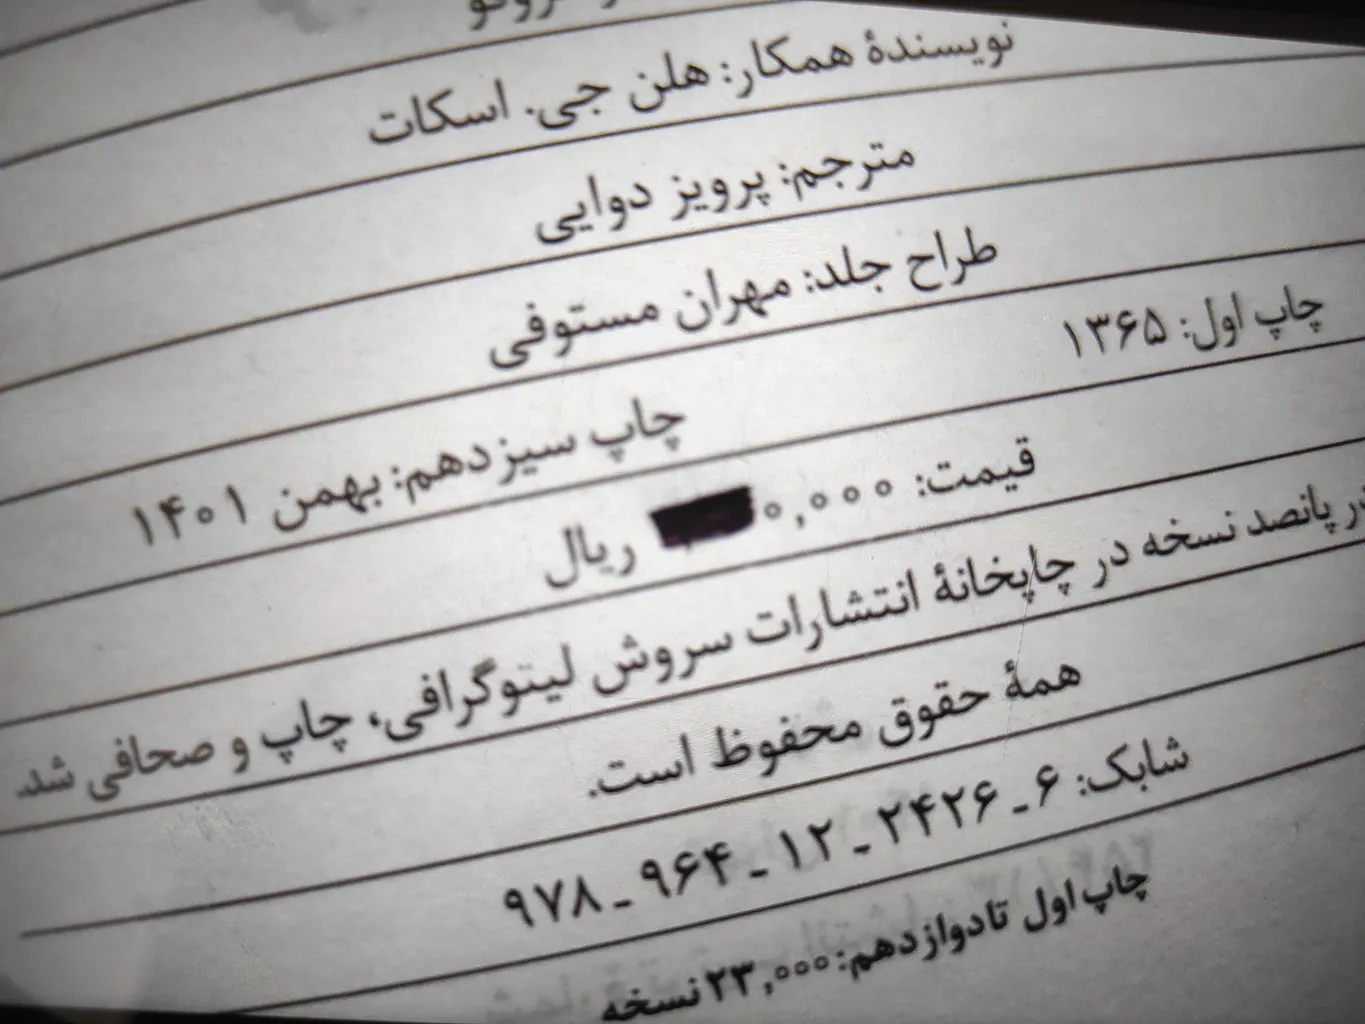 نویسندهٔ همکار: هلن جی. اسکات
مترجم: پرویز دوایی
طراح جلد: مهران مستوفی
چاپ اول: ۱۳۶۵
چاپ سیزدهم: بهمن ۱۴۰۱
قیمت: ۰,۰۰۰ ریال
در پانصد نسخه در چاپخانهٔ انتشارات سروش لیتوگرافی، چاپ و صحافی شد.
همهٔ حقوق محفوظ است.
شابک: ۶ ـ ۲۴۲۶ ـ ۱۲ ـ ۹۶۴ ـ ۹۷۸
چاپ اول تا دوازدهم: ۲۳,۰۰۰ نسخه